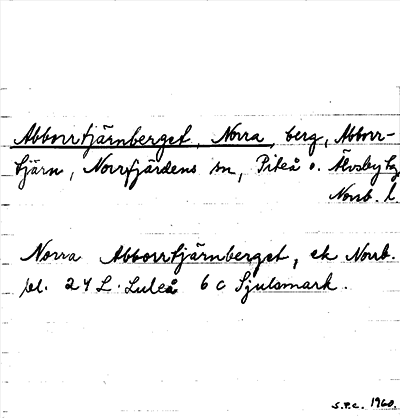 Abborrtjärnberget, Norra, berg, Abborr-
tjärn, Norrfjärdens sn, Piteå o. Älvsby tg,
Norrb. l.
Norra Abborrtjärnberget, ek Norrb.
bl. 24 L. Luleå 6 c Sjulsmark.
S.P.C. 1960.